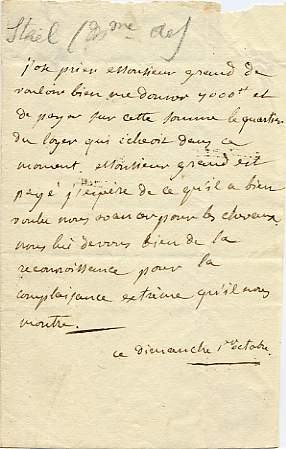 Staël (Mme de)
j'ose prier Monsieur grand de
vouloir bien me donner 4000# et
de payer sur cette somme le quartier
du loyer qui échoit dans ce
moment. Monsieur grand est
payé j'espère de ce qu'il a bien
voulu nous avancer pour les chevaux
nous lui devons bien de la
reconnoissance pour la
complaisance extrême qu'il nous
montre.
ce dimanche 1er octobre.